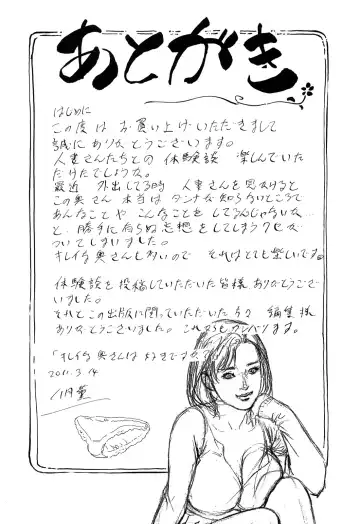 あとがき
はじめに
この度は お買い上げいただきまして
誠にありがとうございます。
人妻さんたちとの 体験談 楽しんでいた
だけたでしょうか。
最近 外出してる時 人妻さんを見かけると
この奥さん 本当は ダンナの知らないところで
あんなことや こんなことを してるんじゃないか…
と、勝手に 妄想を してしまうクセが
ついてしまいました。
キレイな奥さん ので それはとても楽しいです。
体験談を投稿していただいた皆様 ありがとうござ
いました。
それと この出版に関っていただいた方々 編集 様
ありがとうございました。 これからも ガンバります。
「キレイな奥さんは 好きですか?」
2011.3.14
八月薫